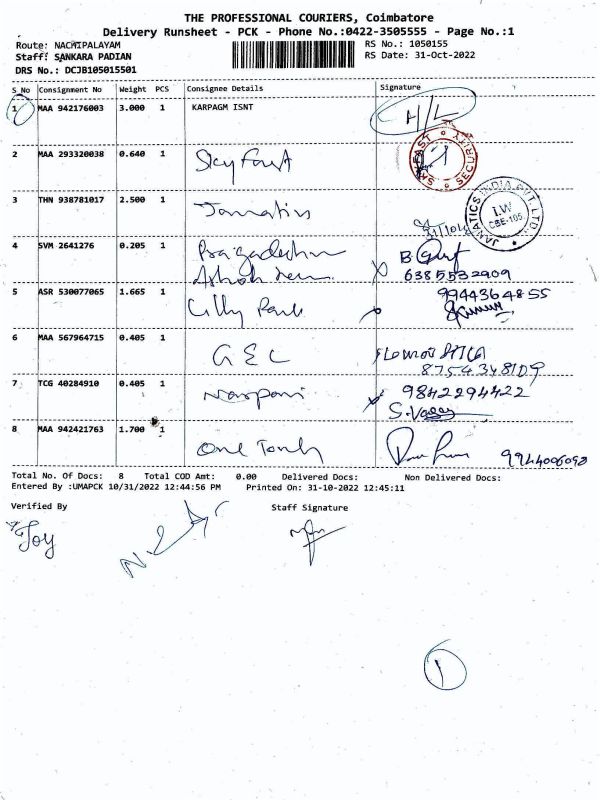 THE PROFESSIONAL COURIERS, Coimbatore
Delivery Runsheet - PCK - Phone No.:0422-3505555 - Page No.:1
Route: NACHIPALAYAM
RS No.: 1050155
Staff: SANKARA PADIAN
RS Date: 31-Oct-2022
DRS No.: DCJB105015501
S_No Consignment No Weight PCS Consignee Details Signature
1 MAA 942176003 3.000 1 KARPAGM ISNT A/L
2 MAA 293320038 0.640 1 Sky Forest
SECURITY
3 THN 938781017 2.500 1 Janatics
JANATICS INDIA PVT LTD.
I.W
CBE-105
4 SVM 2641276 0.205 1
6385532909
5 ASR 530077065 1.665 1
9944364855
6 MAA 567964715 0.405 1 GEC
8754348109
7 TCG 40284910 0.405 1
9842294422
8 MAA 942421763 1.700 1 One Touch
9944006098
Total No. Of Docs: 8 Total COD Amt: 0.00 Delivered Docs: Non Delivered Docs:
Entered By :UMAPCK 10/31/2022 12:44:56 PM Printed On: 31-10-2022 12:45:11
Verified By Staff Signature
Joy
1